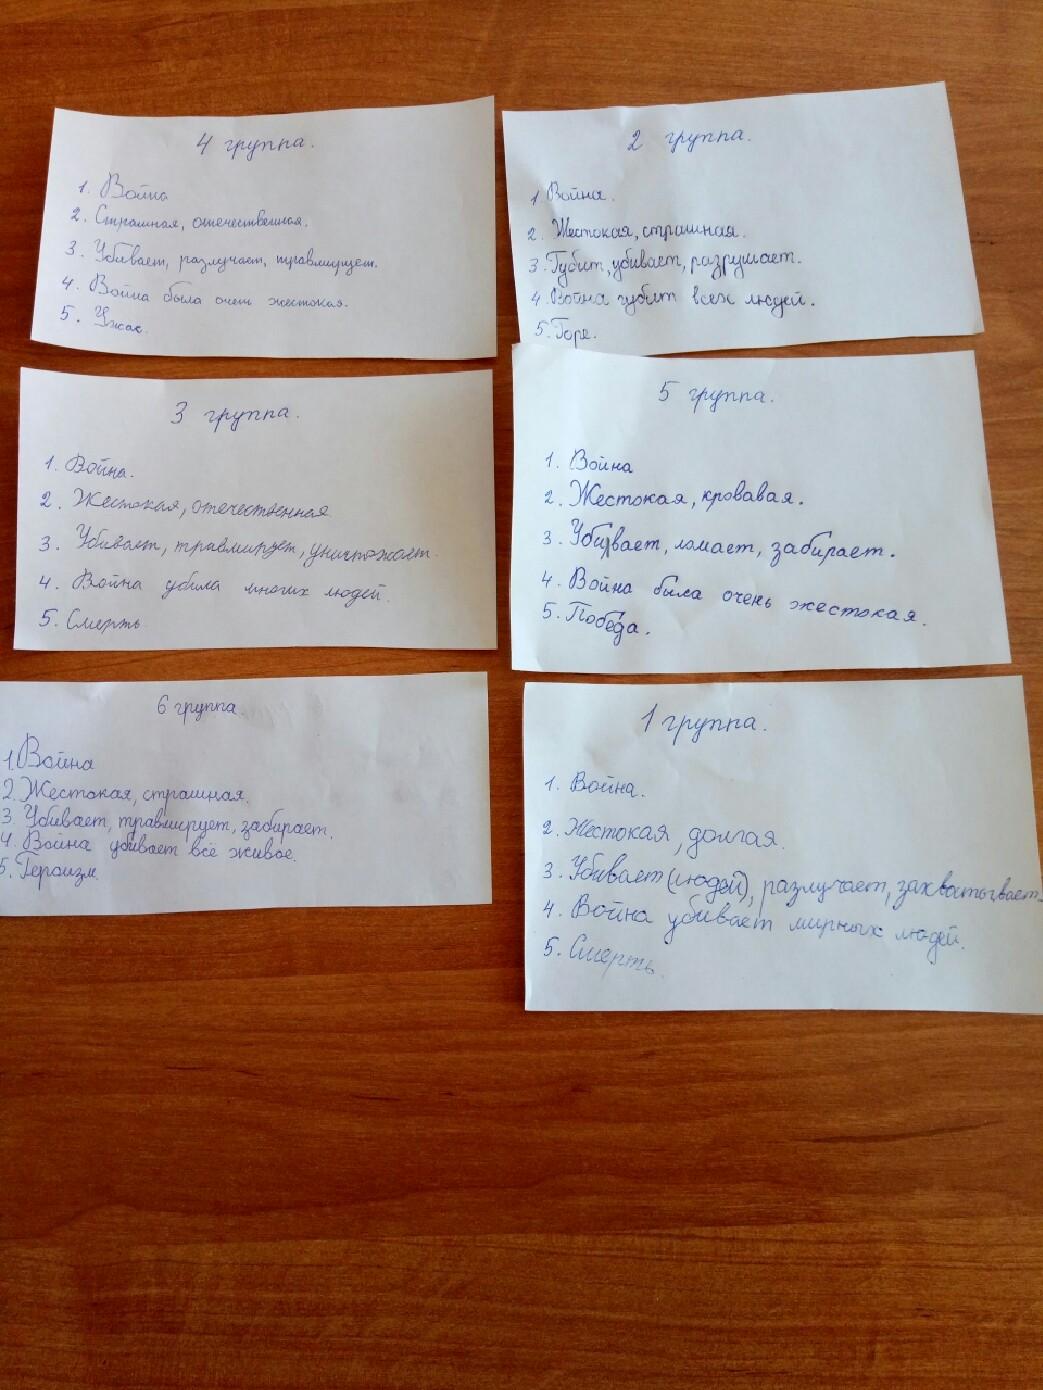 4 группа.
1. Война
2. Страшная, отечественная.
3. Убивает, разлучает, травмирует.
4. Война была очень жестокая.
5. Ужас.
2 группа.
1 Война.
2. Жестокая, страшная.
3. Губит, убивает, разрушает.
4. Война губит всех людей.
5. Горе.
3 группа.
1. Война.
2. Жестокая, отечественная
3. Убивает, травмирует, уничтожает.
4. Война убила многих людей.
5. Смерть
5 группа.
1. Война
2. Жестокая, кровавая.
3. Убивает, ломает, забирает.
4. Война была очень жестокая.
5. Победа.
6 группа
1. Война
2. Жестокая, страшная.
3. Убивает, травмирует, забирает.
4. Война убивает всё живое.
5. Героизм.
1 группа.
1. Война.
2. Жестокая, долгая.
3. Убивает (людей), разлучает, захватывает.
4. Война убивает мирных людей.
5. Смерть.